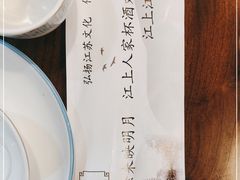 弘扬江苏文化
映明月 江上人家杯酒
江上江